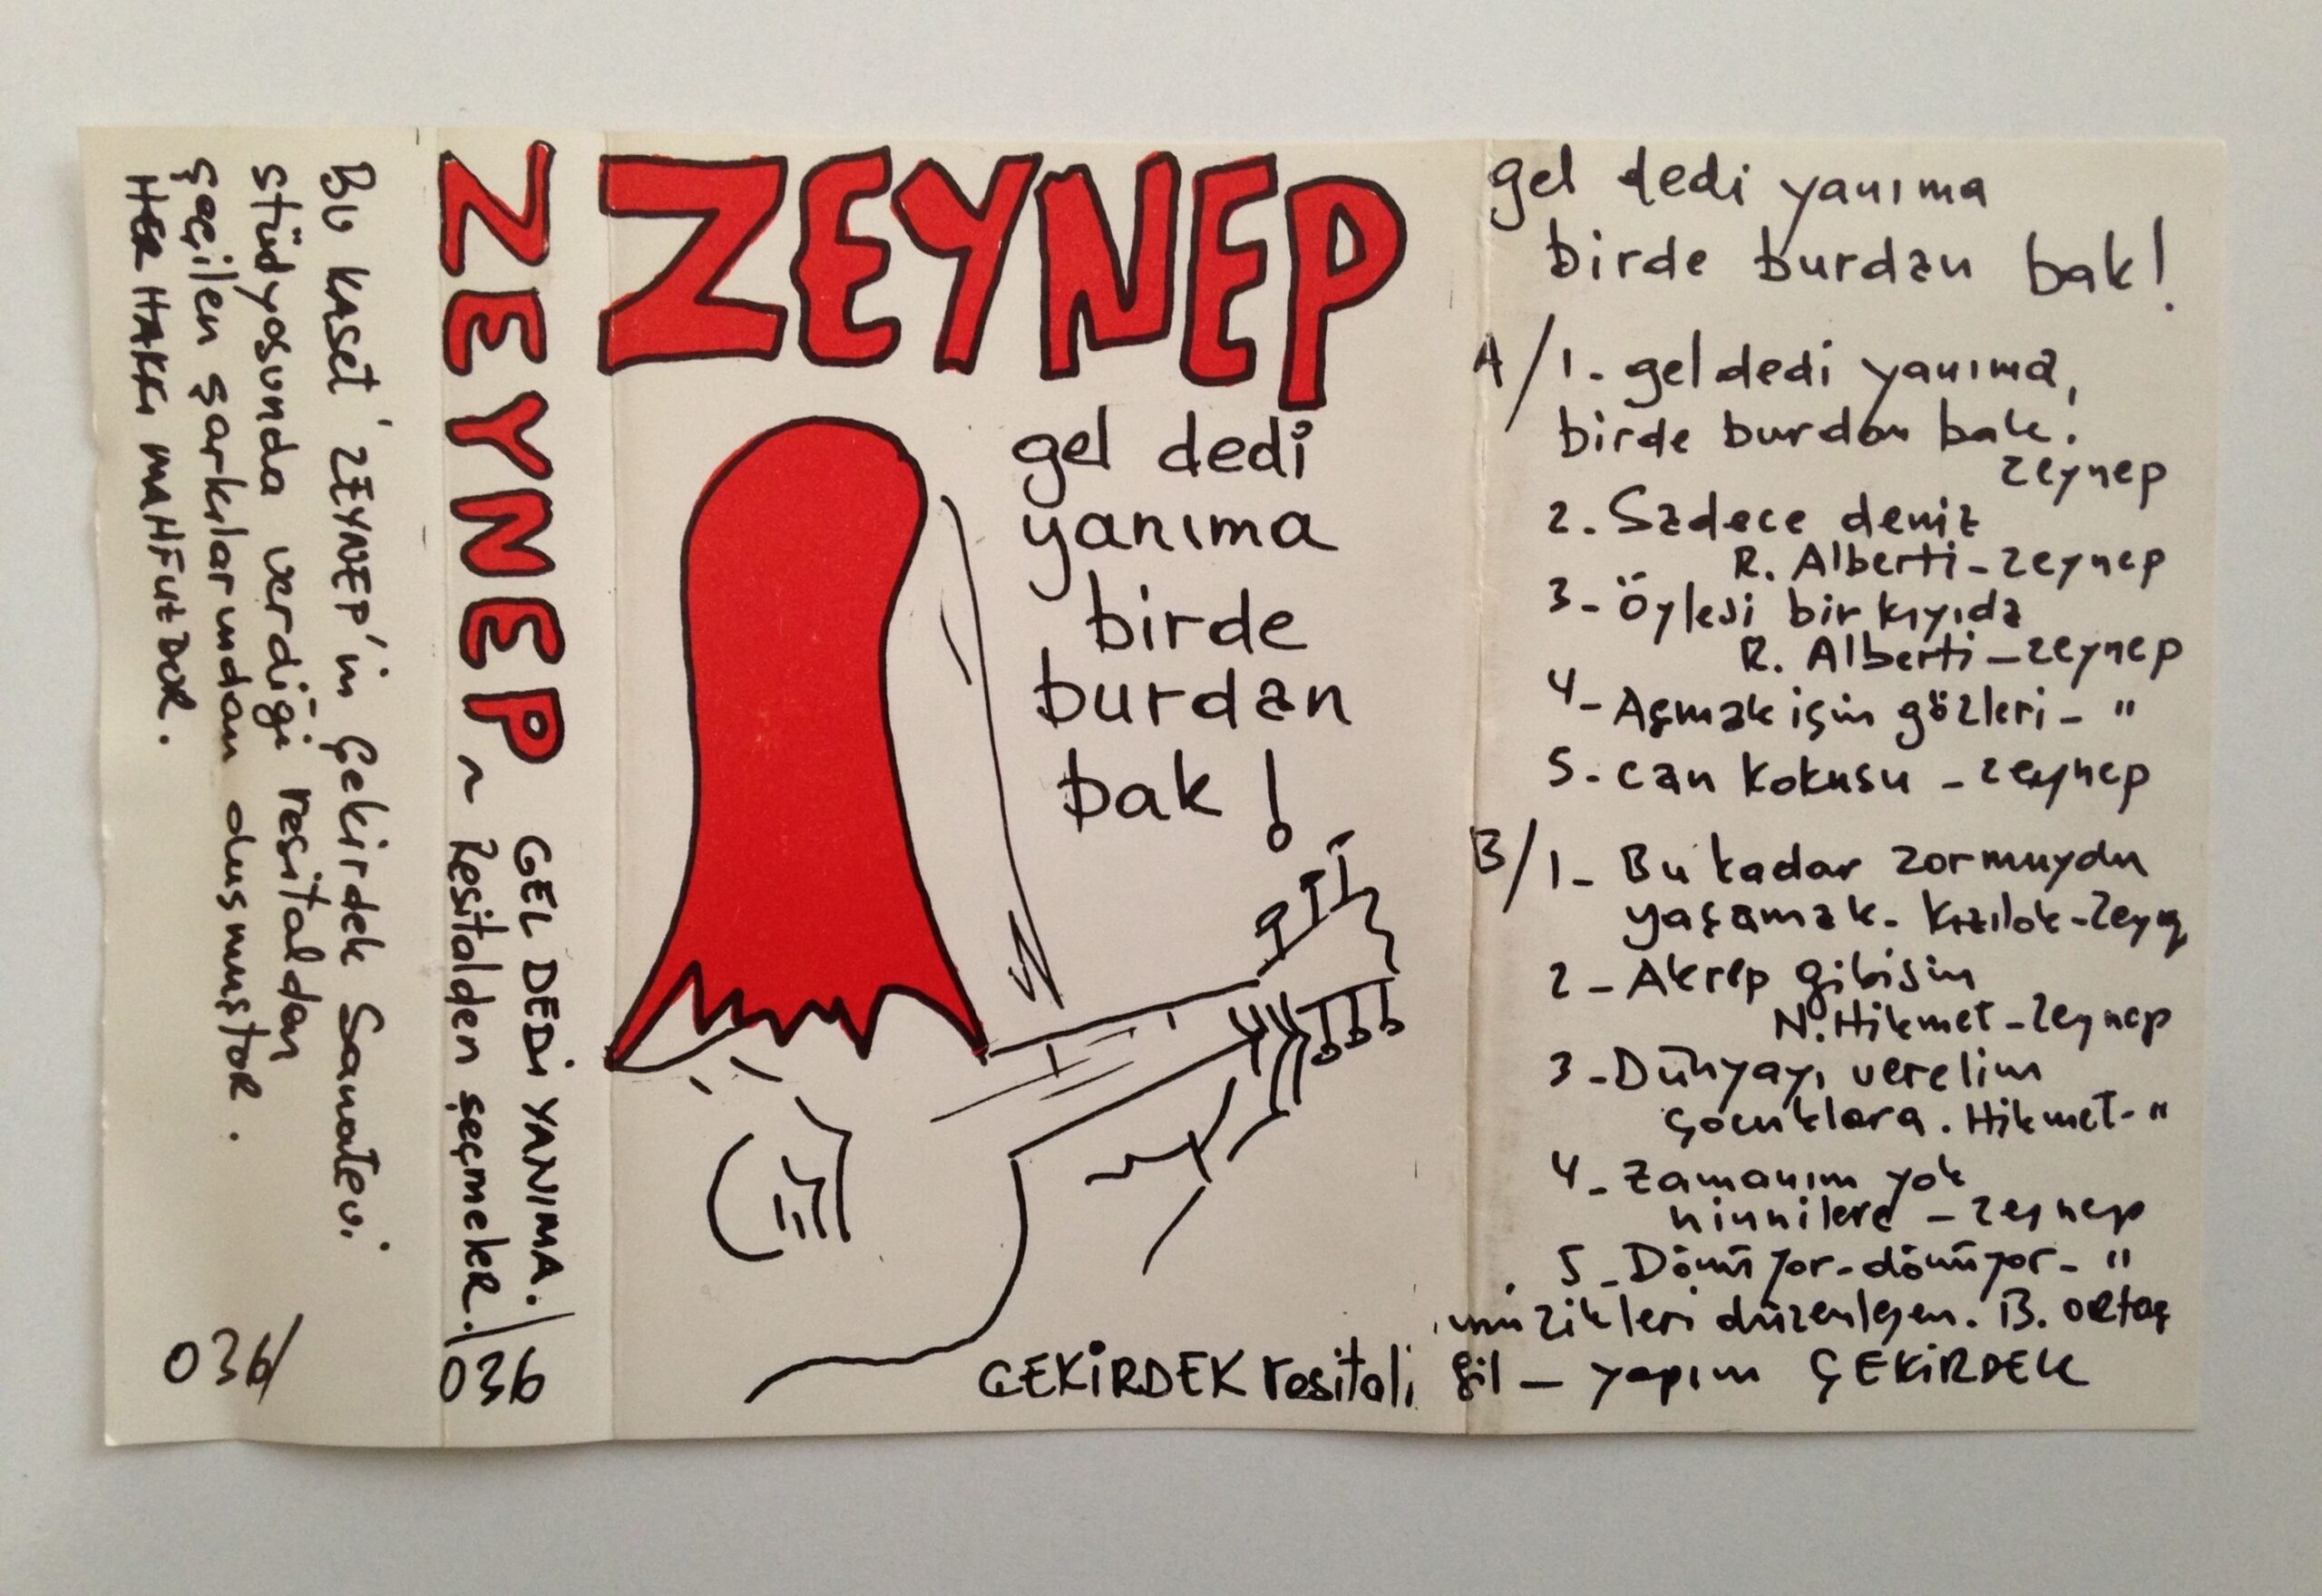 Bu kaset ZEYNEP'in Çekirdek Sanatevi
stüdyosunda verdiği resitalden
şeçilen şarkılarından oluşmuştor.
HER HAKKı MAHFUZDOR.
036/
ZEYNEP ~ GEL DEDi YANIMA./
Resitalden şeçmeler./
036
ZEYNEP
gel dedi
yanıma
birde
burdan
bak!
ÇEKİRDEK resitali
gel dedi yanıma
birde burdan bak!
A/ 1- gel dedi yanıma,
birde burdan bak!
zeynep
2. Sadece deniz
R. Alberti-zeynep
3- Öylesi bir kıyıda
R. Alberti-zeynep
4- Açmak için gözleri- "
5- can kokusu - zeynep
B/ 1- Bu kadar zormuydu
yaşamak. Kızılok-Zeyn
2- Akrep gibisin
N.Hikmet-Zeynep
3-Dünyayı verelim
çocuklara. Hikmet- "
4- Zamanım yok
ninnilere - zeynep
5-Dönüyor-dönüyor- "
müzikleri düzenleyen. B. ORtaç
gil - yapım ÇEKİRDEK